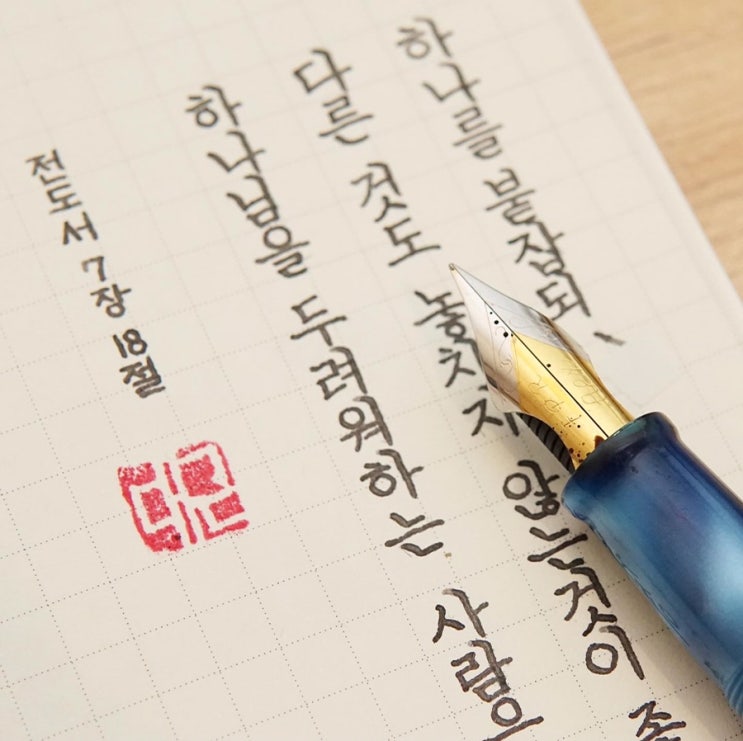 하나를 붙잡되,
다른 것도 놓치지 않는것이
하나님을 두려워하는 사람은
전도서 7장 18절